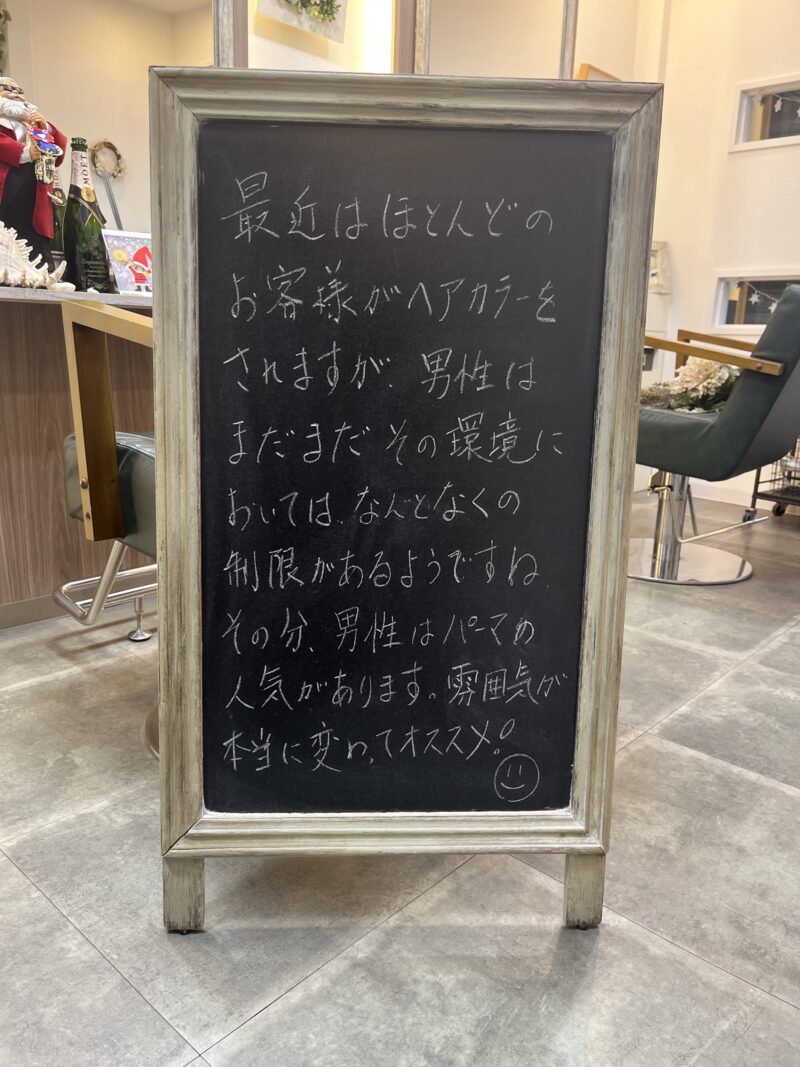 最近はほとんどの
お客様がヘアカラーを
されますが、男性は
まだまだその環境に
おいては、なんとなくの
制限があるようですね、
その分、男性はパーマの
人気があります。雰囲気が
本当に変わってオススメ!
MOËT